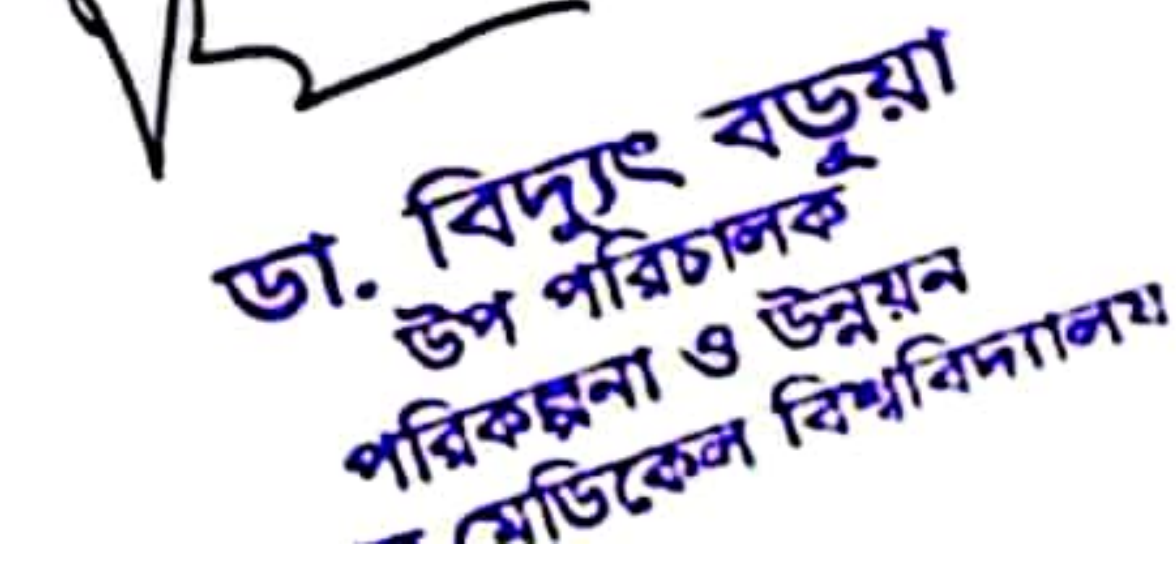 ডা. বিদ্যুৎ বড়ুয়া
উপ পরিচালক
পরিকল্পনা ও উন্নয়ন
মেডিকেল বিশ্ববিদ্যালয়